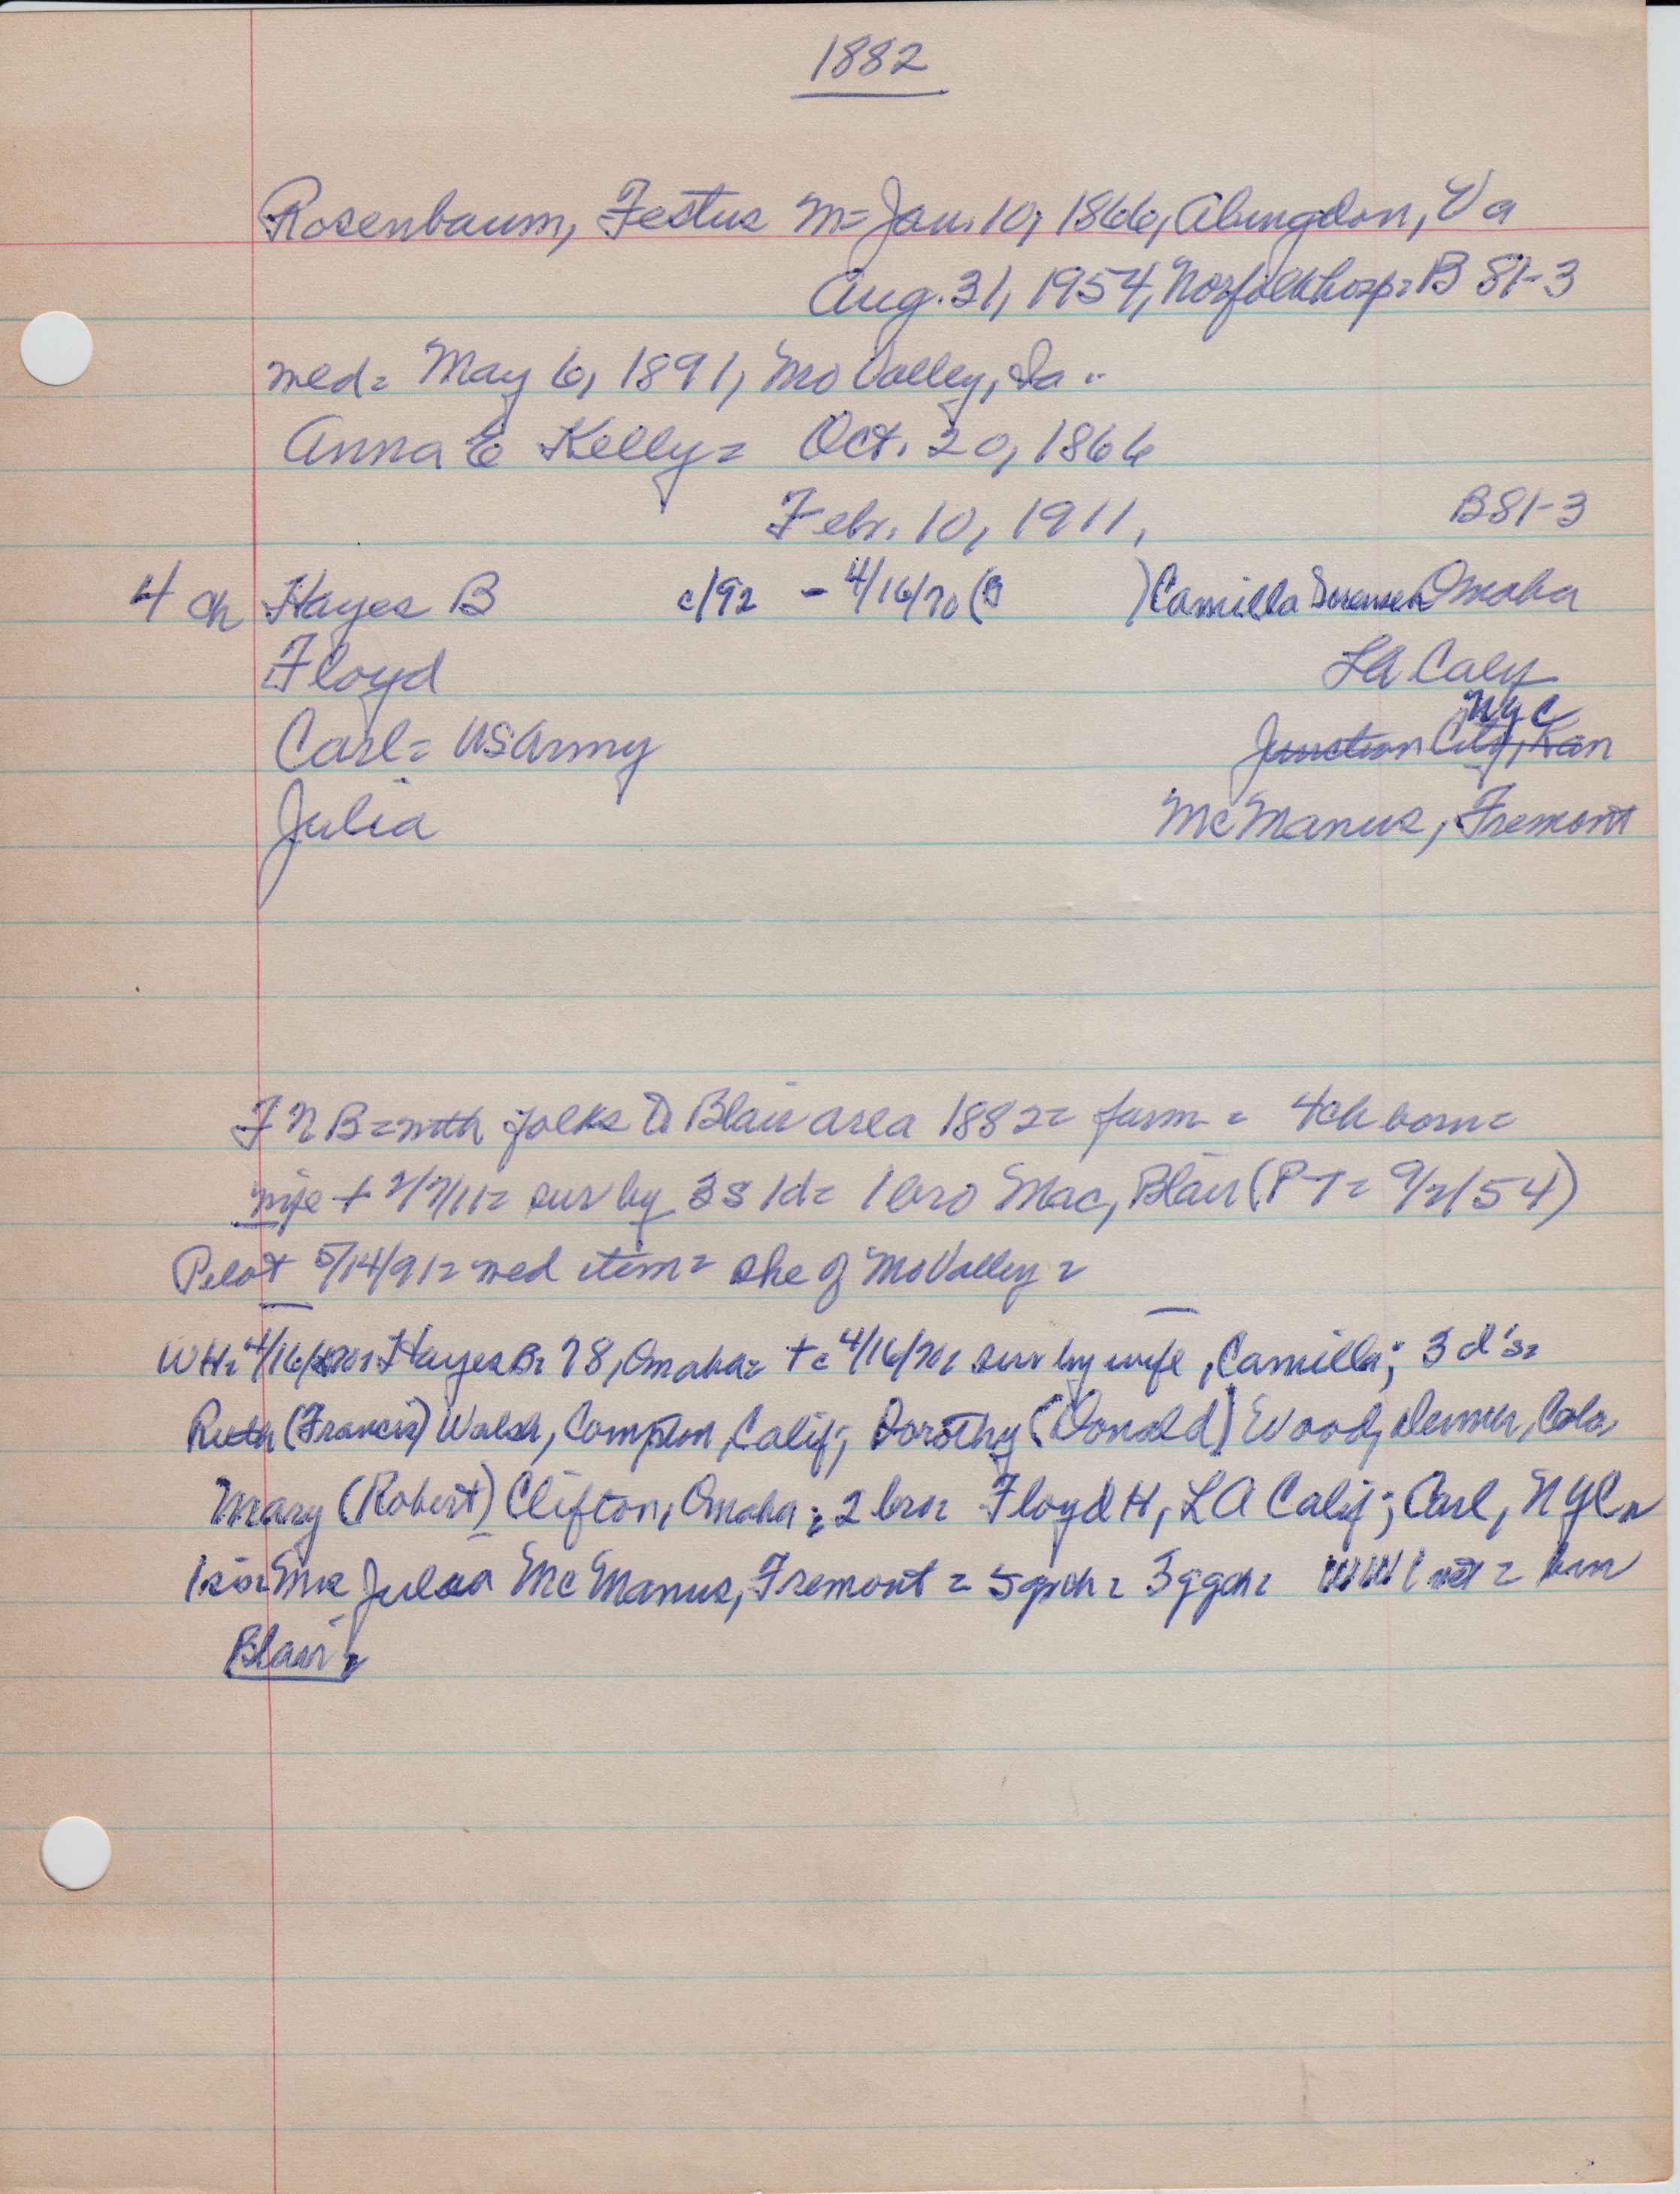 1882
Rosenbaum, Festus M= Jan. 10, 1866, Abingdon, Va
Aug. 31, 1954, Norfolk hosp= B 81-3
wed= May 6, 1891, Mo Valley, Ia..
Anna E Kelly= Oct. 20, 1866
Febr. 10, 1911, B81-3
4 ch Hayes B c/92 - 4/16/70 (B ) Camilla Sorensen Omaha
Floyd LA Calif
NYC
Carl= US Army Junction City, Kan
Julia McManus, Fremont
= with folks to Blair area 1882= farm= 4ch born=
wife + 2/7/11= sur by 3s 1d= 1 bro Mac, Blair (PT= 9/2/54)
Pilot 5/14/91= wed item= she of MoValley=
WH= 4/16/70= Hayes B= 78, Omaha= += 4/16/70= sur by wife, Camilla; 3 d's=
Ruth (Francis) Walsh, Compton, Calif; Dorothy (Donald) Wood, Denver, Colo,
Mary (Robert) Clifton, Omaha; 2 bro= Floyd H, LA Calif; Carl, NYC=
1 sis= Mrs Julia McManus, Fremont = 5 grch= 3 ggch= WW1 vet = brn
Blair=